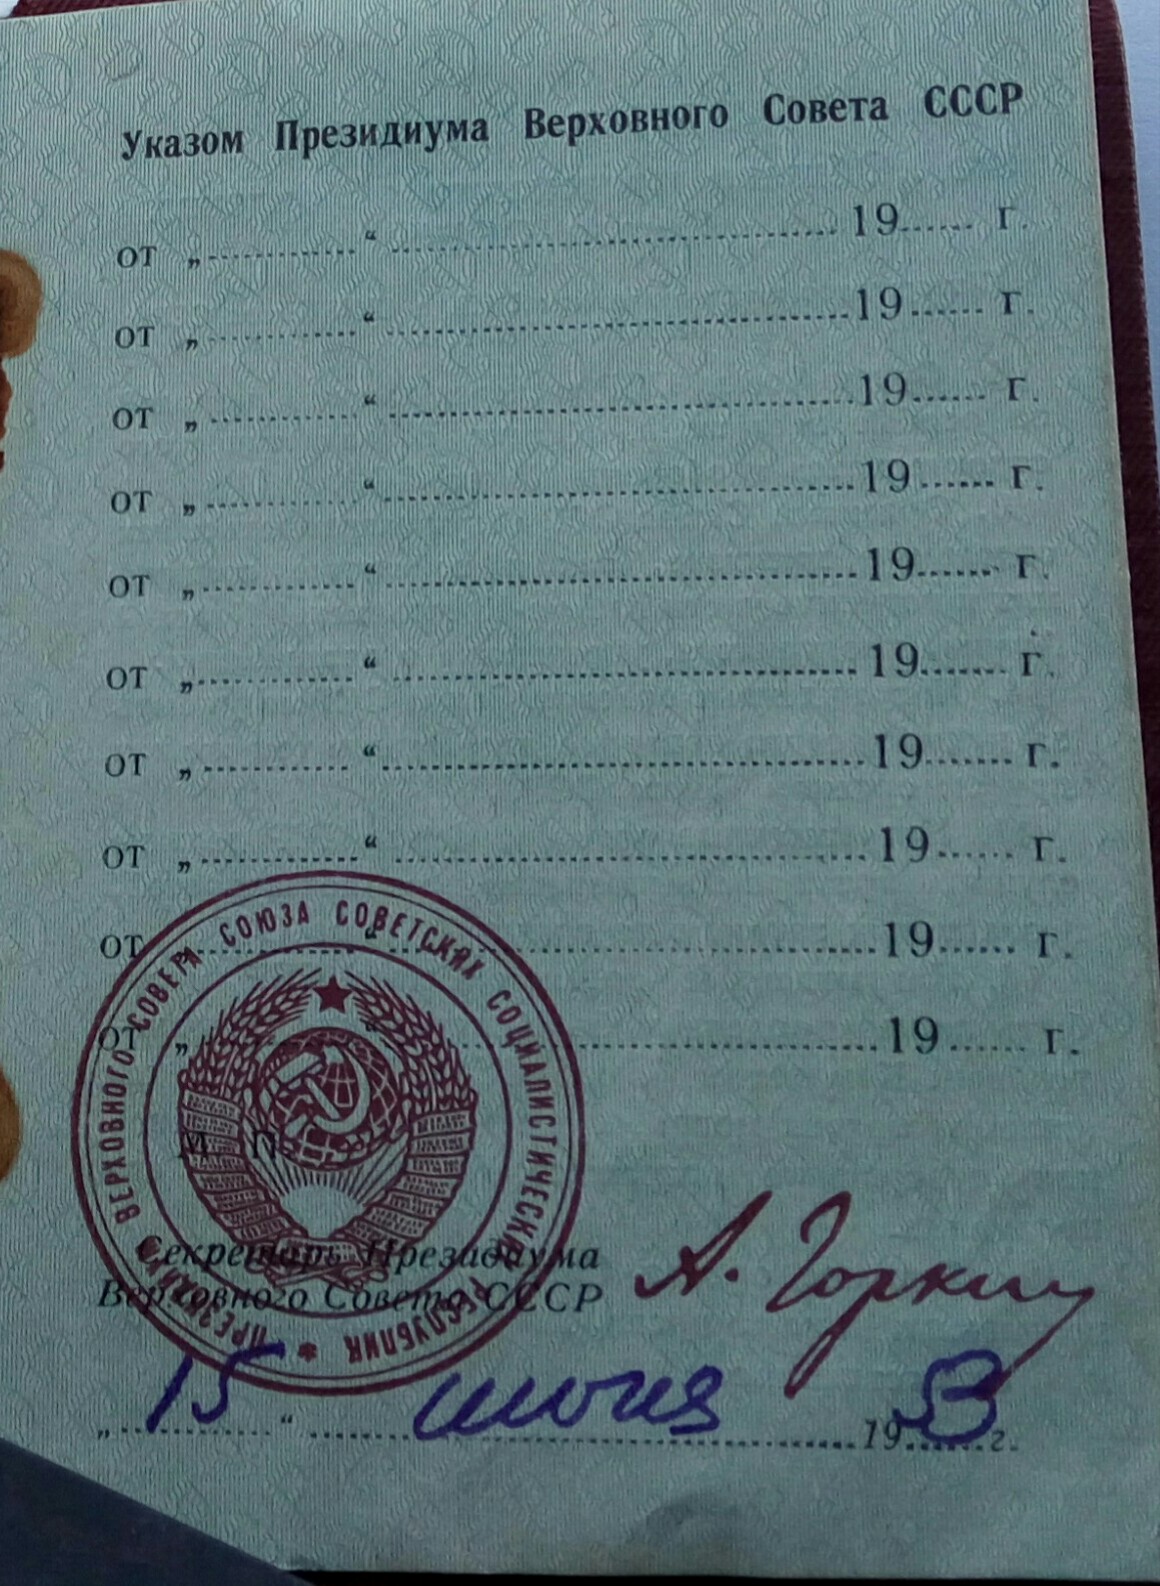 Указом Президиума Верховного Совета СССР
от „ “ 19 г.
от „ “ 19 г.
от „ “ 19 г.
от „ “ 19 г.
от „ “ 19 г.
от „ “ 19 г.
от „ “ 19 г.
от „ “ 19 г.
от „ “ 19 г.
от „ “ 19 г.
ПРЕЗИДИУМ ВЕРХОВНОГО СОВЕТА СОЮЗА СОВЕТСКИХ СОЦИАЛИСТИЧЕСКИХ РЕСПУБЛИК
М П
Секретарь Президиума
Верховного Совета СССР А. Горкин
„ 15 “ 19 г.